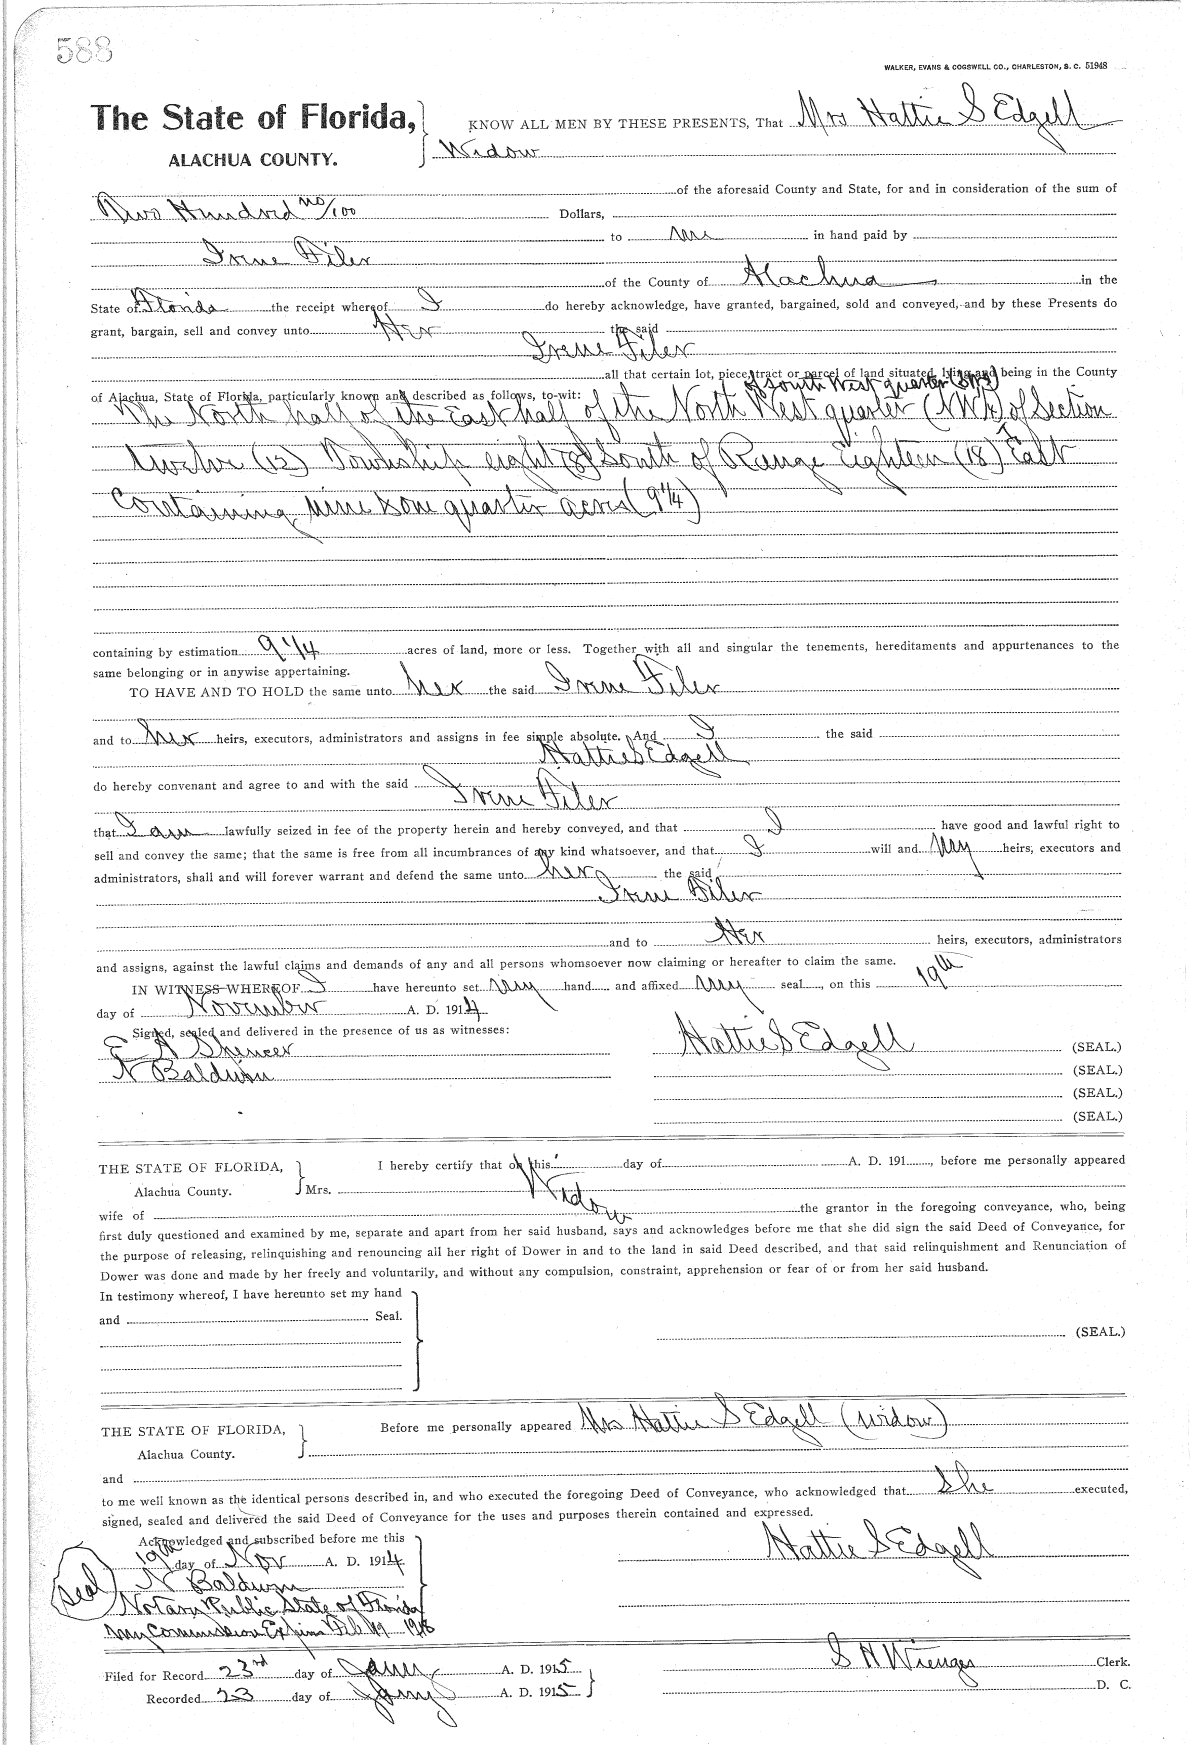 588
WALKER, EVANS & COGSWELL CO., CHARLESTON, S. C. 51948
The State of Florida, KNOW ALL MEN BY THESE PRESENTS, That Mrs Hattie S Edgell
ALACHUA COUNTY. Widow
of the aforesaid County and State, for and in consideration of the sum of
Two Hundred no/100 Dollars,
to me in hand paid by
Irene Filer
of the County of Alachua in the
State of Florida the receipt whereof I do hereby acknowledge, have granted, bargained, sold and conveyed, and by these Presents do
grant, bargain, sell and convey unto Her the said
Irene Filer
all that certain lot, piece, tract or parcel of land situated, lying and being in the County
of Alachua, State of Florida, particularly known and described as follows, to-wit: of South West quarter
The North half of the East half of the North West quarter (NW¼) of Section
twelve (12) Township eight (8) South of Range Eighteen (18) East
Containing nine & one quarter acres (9¼)
containing by estimation 9 1/4 acres of land, more or less. Together with all and singular the tenements, hereditaments and appurtenances to the
same belonging or in anywise appertaining.
TO HAVE AND TO HOLD the same unto her the said Irene Filer
and to her heirs, executors, administrators and assigns in fee simple absolute. And I the said
Hattie S Edgell
do hereby convenant and agree to and with the said Irene Filer
that I am lawfully seized in fee of the property herein and hereby conveyed, and that I have good and lawful right to
sell and convey the same; that the same is free from all incumbrances of any kind whatsoever, and that I will and my heirs, executors and
administrators, shall and will forever warrant and defend the same unto her the said
Irene Filer
and to Her heirs, executors, administrators
and assigns, against the lawful claims and demands of any and all persons whomsoever now claiming or hereafter to claim the same.
IN WITNESS WHEREOF I have hereunto set my hand and affixed my seal, on this 19th
day of November A. D. 1914
Signed, sealed and delivered in the presence of us as witnesses:
E A Spencer Hattie S Edgell (SEAL.)
N Baldwin (SEAL.)
(SEAL.)
(SEAL.)
THE STATE OF FLORIDA, I hereby certify that on this day of A. D. 191 , before me personally appeared
Alachua County. Mrs. Widow
wife of the grantor in the foregoing conveyance, who, being
first duly questioned and examined by me, separate and apart from her said husband, says and acknowledges before me that she did sign the said Deed of Conveyance, for
the purpose of releasing, relinquishing and renouncing all her right of Dower in and to the land in said Deed described, and that said relinquishment and Renunciation of
Dower was done and made by her freely and voluntarily, and without any compulsion, constraint, apprehension or fear of or from her said husband.
In testimony whereof, I have hereunto set my hand
and Seal.
(SEAL.)
THE STATE OF FLORIDA, Before me personally appeared Mrs Hattie S Edgell (widow)
Alachua County.
and
to me well known as the identical persons described in, and who executed the foregoing Deed of Conveyance, who acknowledged that she executed,
signed, sealed and delivered the said Deed of Conveyance for the uses and purposes therein contained and expressed.
Acknowledged and subscribed before me this
19th day of Nov A. D. 1914 Hattie S Edgell
seal N Baldwin
Notary Public State of Florida
My Commission Expires Feb 1918
Filed for Record 23rd day of Jany A. D. 1915 S H Wienges Clerk.
Recorded 23 day of Jany A. D. 1915 D. C.